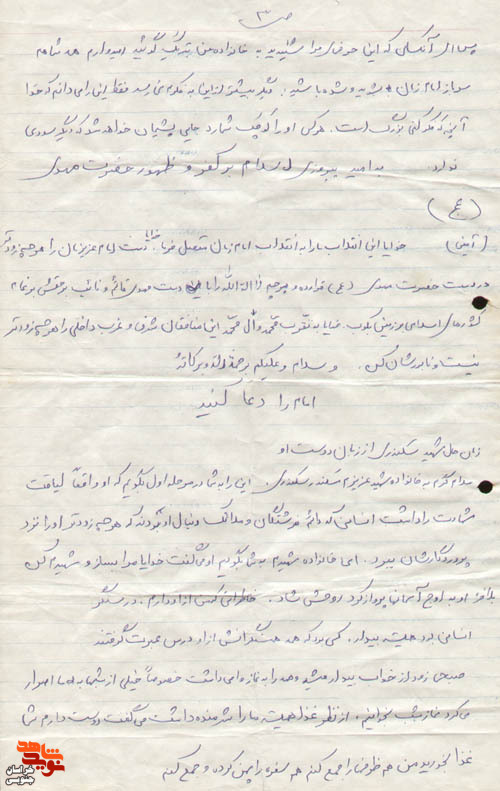 ص ۳
پس ای آنکسانی که این حرفهای مرا شنیدید به خانواده من تبریک گوئید امیدوارم همه شما هم
سرباز امام زمان باشید و شده باشید. دیگر بیشتر از این به فکرم نمی رسد فقط این را می دانم که خدا
آنچه که فکر کنی بزرگ است. هر کس او را کوچک شمارد جایی پشیمان خواهد شد که دیگر سودی
ندارد. به امید پیروزی اسلام بر کفر و ظهور حضرت مهدی
(عج)
(آمین) خدایا این انقلاب ما را به انقلاب امام زمان متصل فرما. خدایا دست امام عزیزمان را هر چه زودتر
در دست حضرت مهدی (عج) قرار ده و پرچم لا اله الا الله را با دست مهدی قائم و نائب بر حقش بر تمام
کشورهای اسلامی و زمین بکوب. خدایا به تقرب محمد و آل محمد این منافقان شرق و غرب داخلی را هر چه زودتر
نیست و نابودشان کن. و سلام و علیکم و رحمة الله و برکاته
امام را دعا کنید
زبان حال شهید سکندری از زبان دوست او
سلام گرم به خانواده شهید عزیزم اسفندر سکندری. این را به شما در مرحله اول بگویم که او واقعاً لیاقت
شهادت را داشت انسانی که دائم فرشتگان و ملائک دنبال او بودند که هر چه زودتر او را نزد
پروردگارشان ببرد. ای خانواده شهیدم به شما بگویم او می گفت خدایا مرا بساز و شهیدم کن
بالاخره او به اوج آسمانها پرواز کرد روحش شاد. خاطراتی که من از او دارم. در سنگر
انسانی بود همیشه بیدار، کسی بود که همه همسنگرانش از او درس عبرت گرفتند
صبحی زود از خواب بیدار میشد و همه را به نماز وا می داشت خصوصاً خیلی از شبها به ما اصرار
می کرد نماز شب بخوانیم، از نظر غذا همیشه ما را شرمنده داشت می گفت دوست دارم شما
غذا بخورید من هم ظرفها را جمع کنم هم سفره را پهن کرده و جمع کنم
شاهد
نوید
خراسان
جنوبی